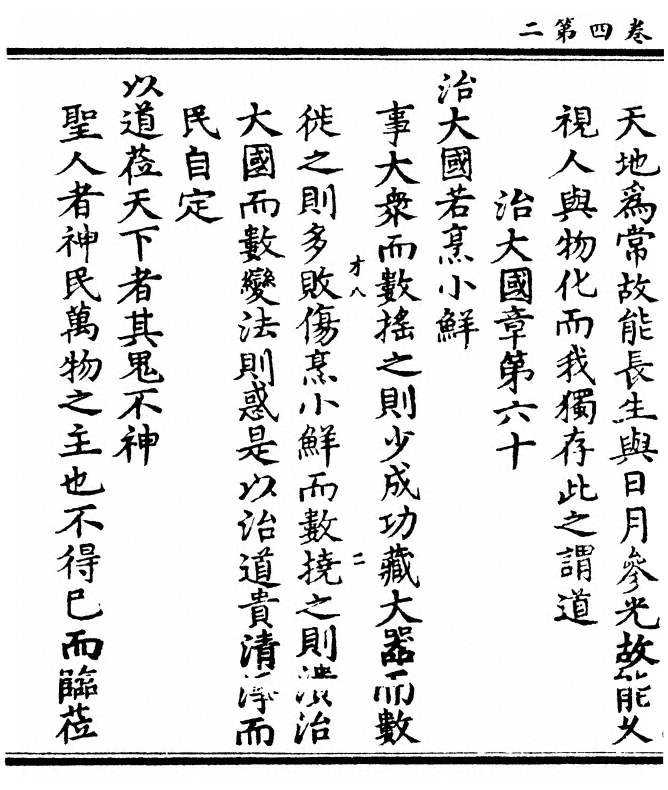 卷四第二
天地為常故能長生與日月參光故能久
視人與物化而我獨存此之謂道
治大國章第六十
治大國若烹小鮮
事大衆而數搖之則少成功藏大器而數
徙之則多敗傷烹小鮮而數撓之則潰治
大國而數變法則惑是以治道貴清淨而
民自定
以道莅天下者其鬼不神
聖人者神民萬物之主也不得已而臨莅
才八
二